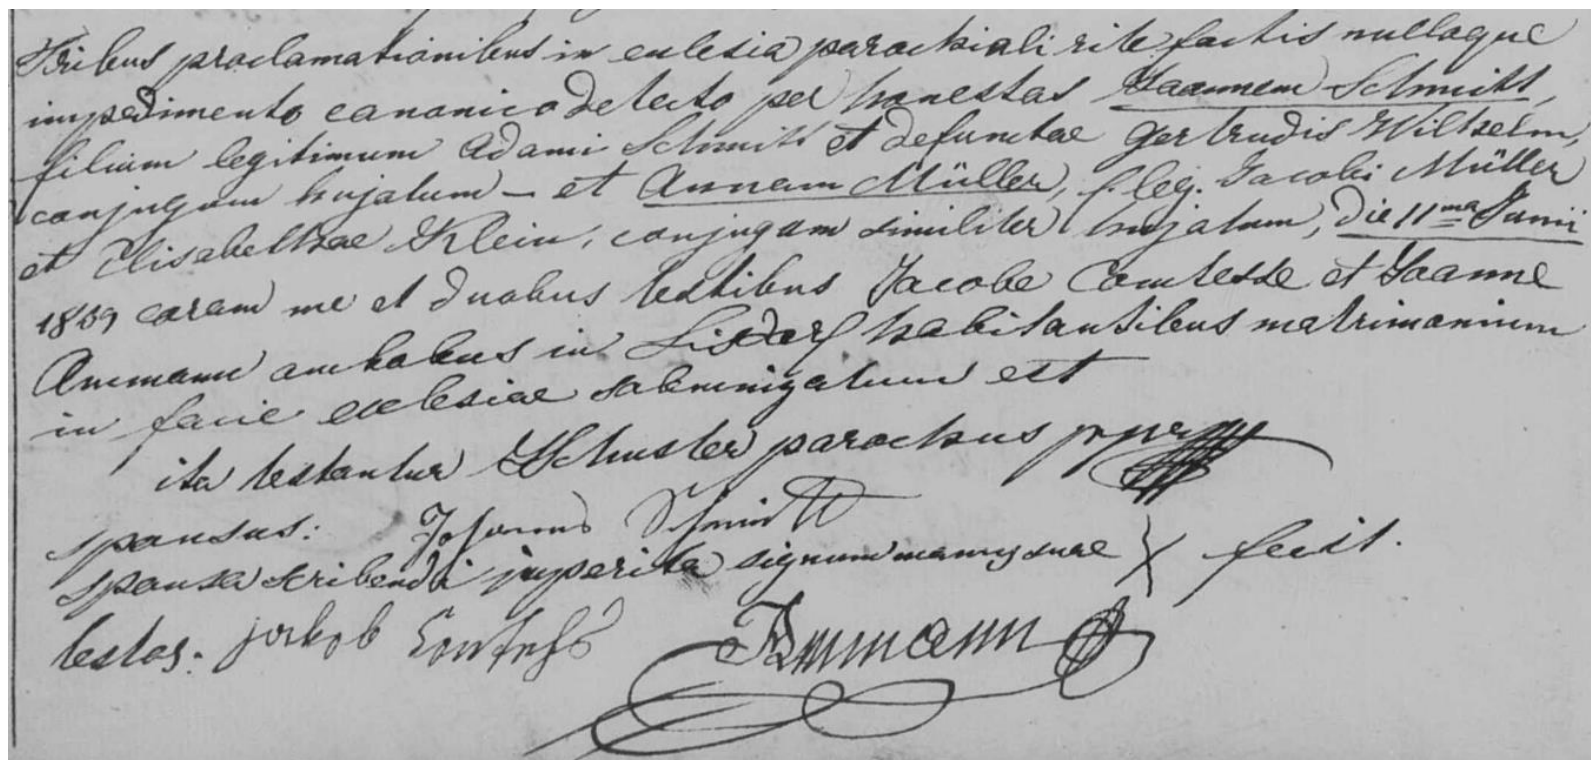 Tribus proclamationibus in eclesia parochiali rite factis nullaque
impedimento canonico detecto per honestas Joannem Schmitt,
filium legitimum Adami Schmitt et defunctae Gertrudis Wiltzem,
conjugum hujatum – et Annam Müller, f. leg. Jacobi Müller
et Elisabethae Klein, conjugam similiter hujatum, die 11ma Junii
1859 coram me et duobus testibus Jacobo Comtesse et Joanne
Ammann ambobus in Lisdorf habitantibus matrimonium
in facie ecclesiae solemnizatum est
ita testantur Schuster parochus
sponsus: Johann Schmitt
sponsa scribendi imperita signum manus suae X fecit.
testes: Jakob Contess Ammann